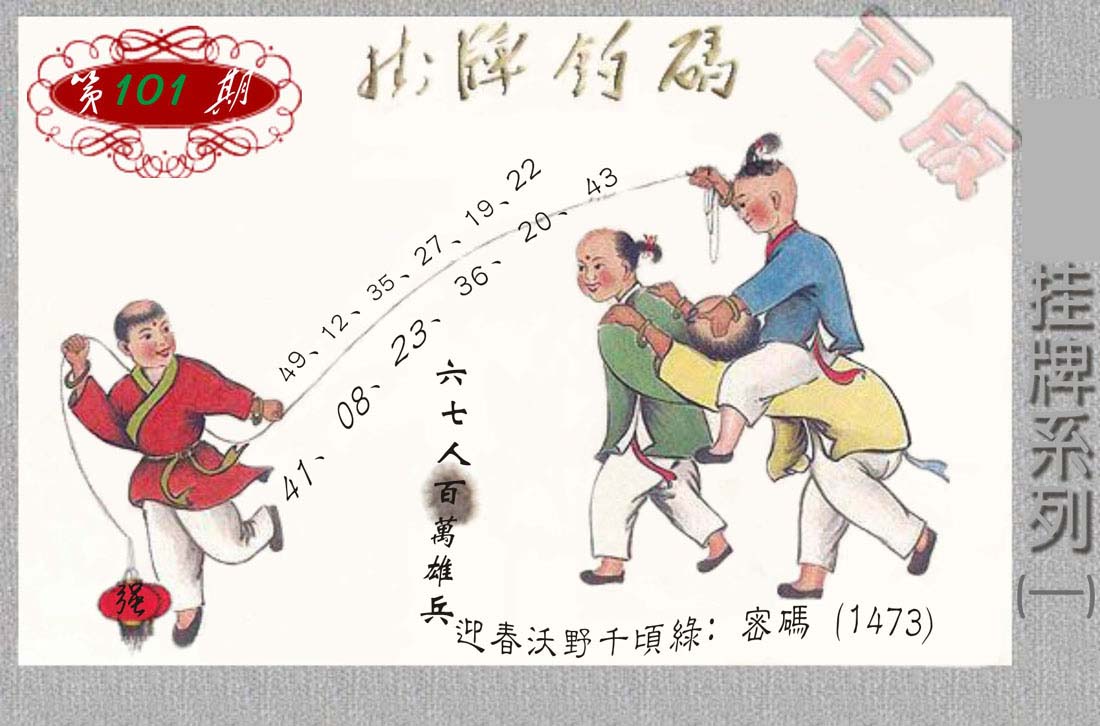 第101期
掛牌釣碼
正版
49、12、35、27、19、22
41、08、23、36、20、43
六七人百萬雄兵
强
迎春沃野千頃綠：密碼（1473）
挂牌系列(一)